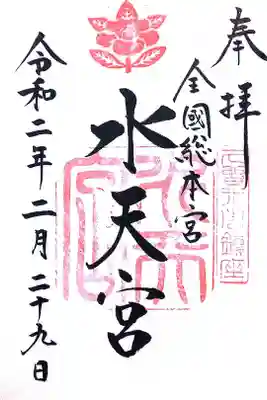 奉拝
全國総本宮
水天宮
令和二年二月二十九日